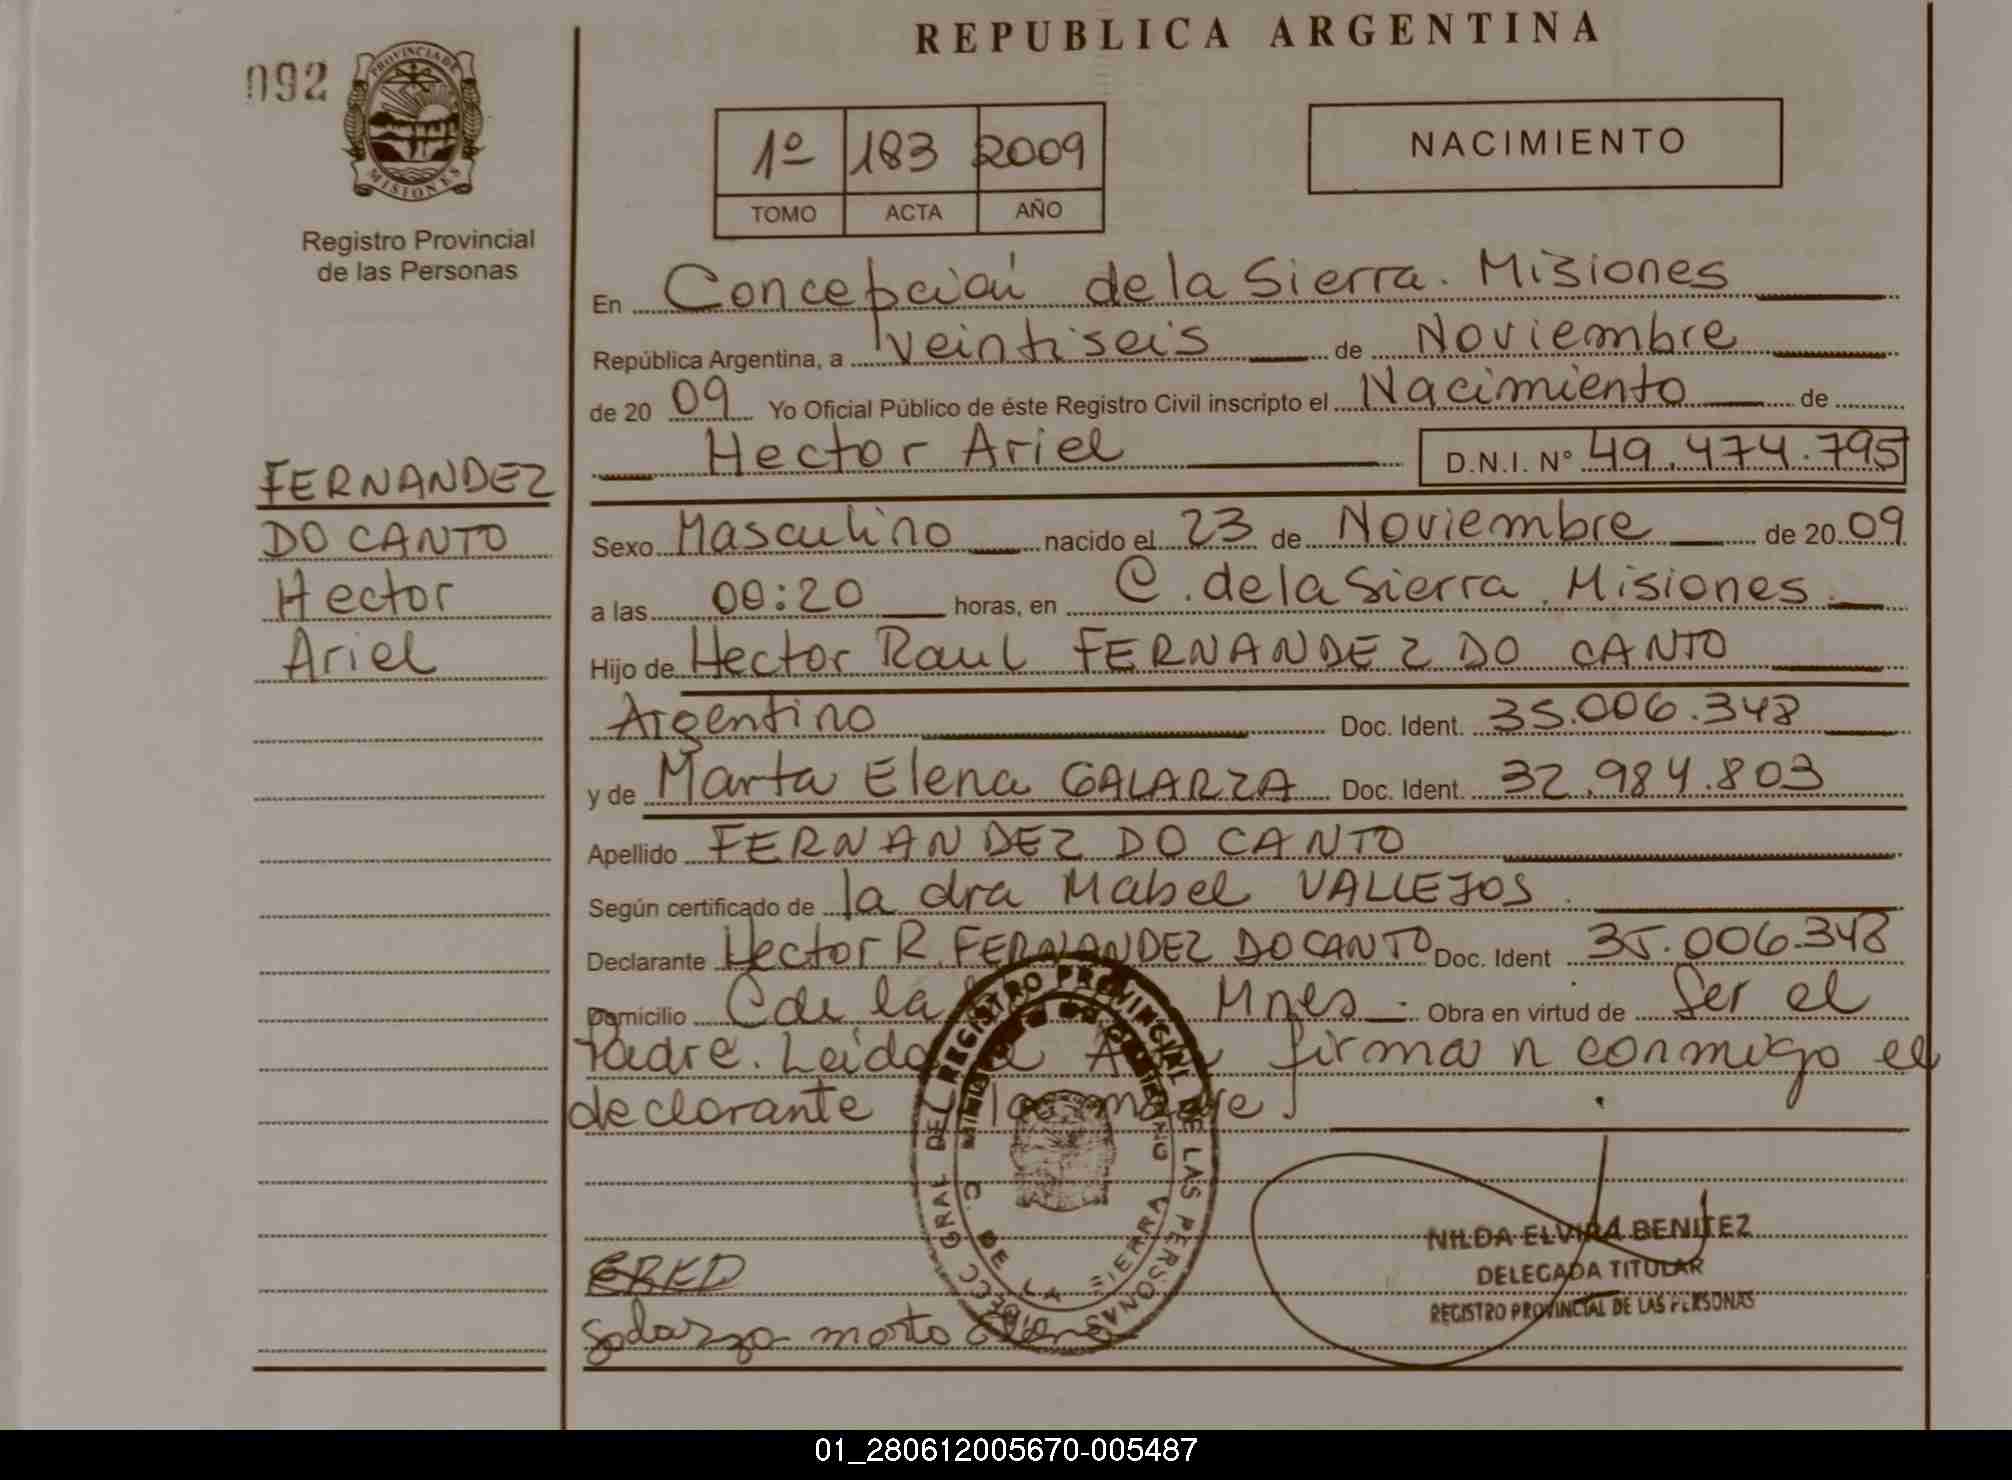 REPUBLICA ARGENTINA
092
PROVINCIA DE
MISIONES
Registro Provincial
de las Personas
1º 183 2009
TOMO ACTA AÑO
NACIMIENTO
En Concepción de la Sierra. Misiones
República Argentina, a veintiseis de Noviembre
de 20 09 Yo Oficial Público de éste Registro Civil inscripto el Nacimiento de
Hector Ariel D.N.I. Nº 49.474.795
FERNANDEZ
DO CANTO
Hector
Ariel
Sexo Masculino nacido el 23 de Noviembre de 20 09
a las 00:20 horas, en C. de la Sierra. Misiones
Hijo de Hector Raul FERNANDEZ DO CANTO
Argentino Doc. Ident. 35.006.348
y de Marta Elena GALARZA Doc. Ident. 32.984.803
Apellido FERNANDEZ DO CANTO
Según certificado de la dra Mabel VALLEJOS.
Declarante Hector R. FERNANDEZ DO CANTO Doc. Ident 35.006.348
Domicilio C de la Mnes. Obra en virtud de Ser el
Padre. Leida el firman conmigo el
declarante la madre.
REGISTRO PROVINCIAL DE LAS PERSONAS
C. DE LA SIERRA
NILDA ELVIRA BENITEZ
DELEGADA TITULAR
REGISTRO PROVINCIAL DE LAS PERSONAS
01_280612005670-005487